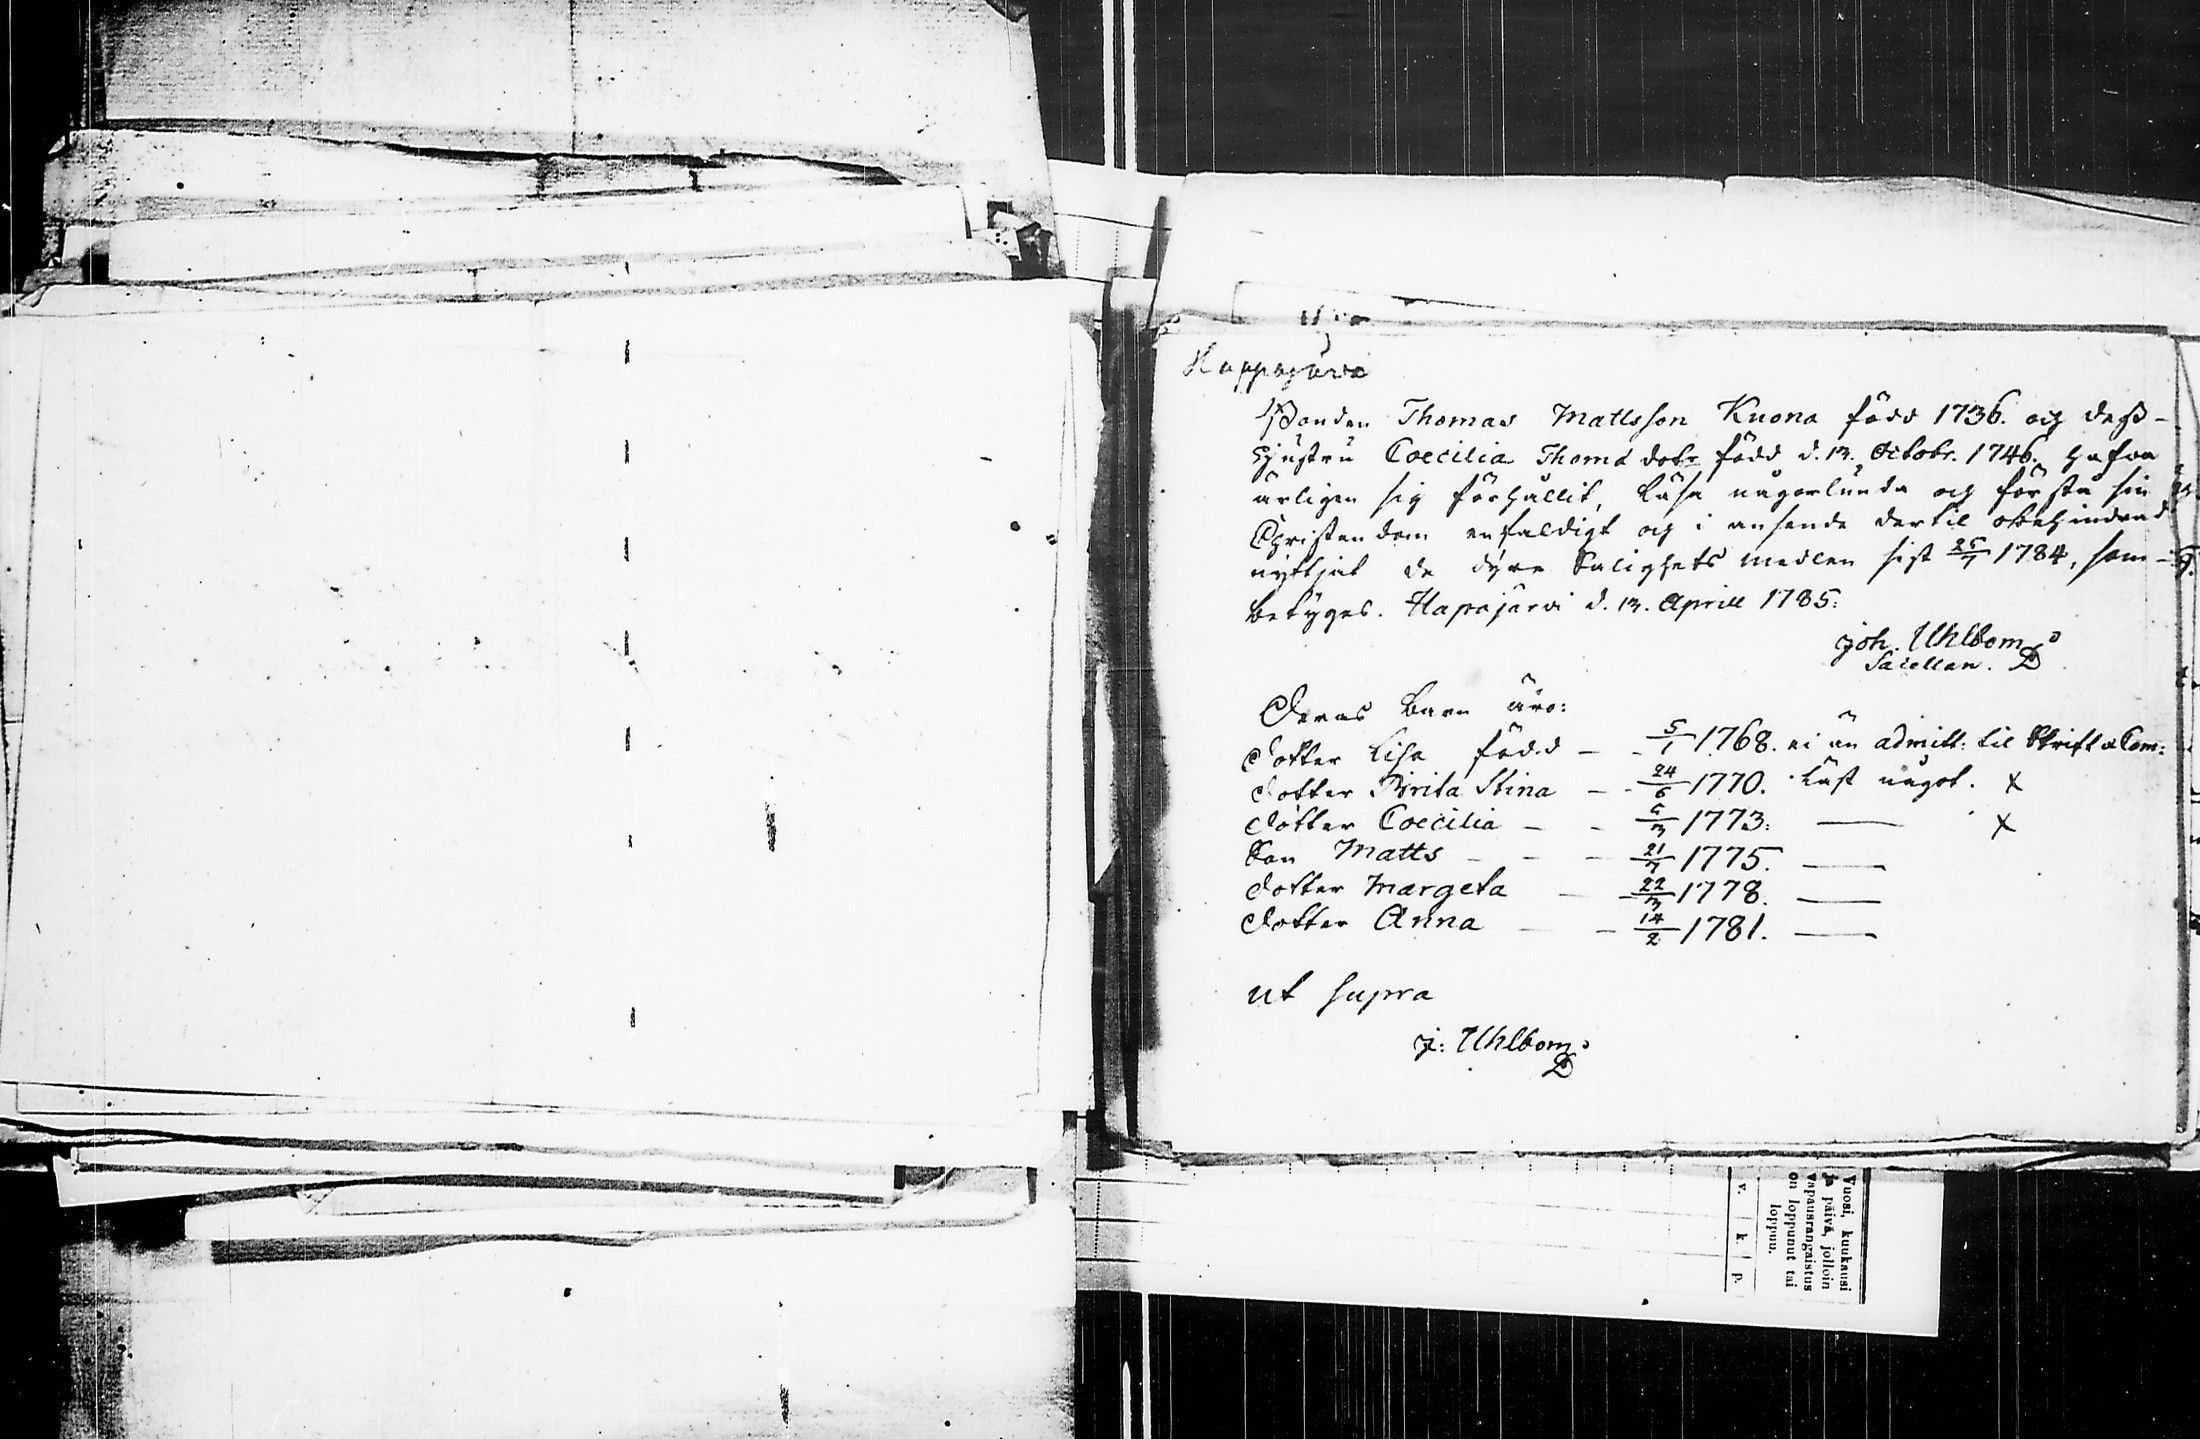 Kappajärvi
Bonden Thomas Mattsson Kuona född 1736. och dess-
hustru Coecilia Thomæ dotr född d. 13. Octobr. 1746. hafva
ärligen sig förhållit, läsa någorlunda och förstå sin
Christendom enfaldigt och i anseende dertil obehindrad
nyttjat de dyre Salighets medlen sist 25/7 1784, som-
betyges. Hapajärvi d. 13. Aprill 1785:
Joh. Uhlbom
Sacellan.
Deras barn äro:
dotter Lisa född - - 5/1 1768. ei än admitt: til Skrift & Com:
dotter Brita Stina - - 24/6 1770. läst något. x
dotter Coecilia - - 6/3 1773: — x
Son Matts - - - 21/7 1775. —
dotter Margeta - 22/3 1778. —
dotter Anna - - 14/2 1781. —
ut supra
J: Uhlbom
Vuosi, kuukausi
ja päivä, jolloin
vapausrangaistus
on loppunut tai
loppuu.
v. k. p.